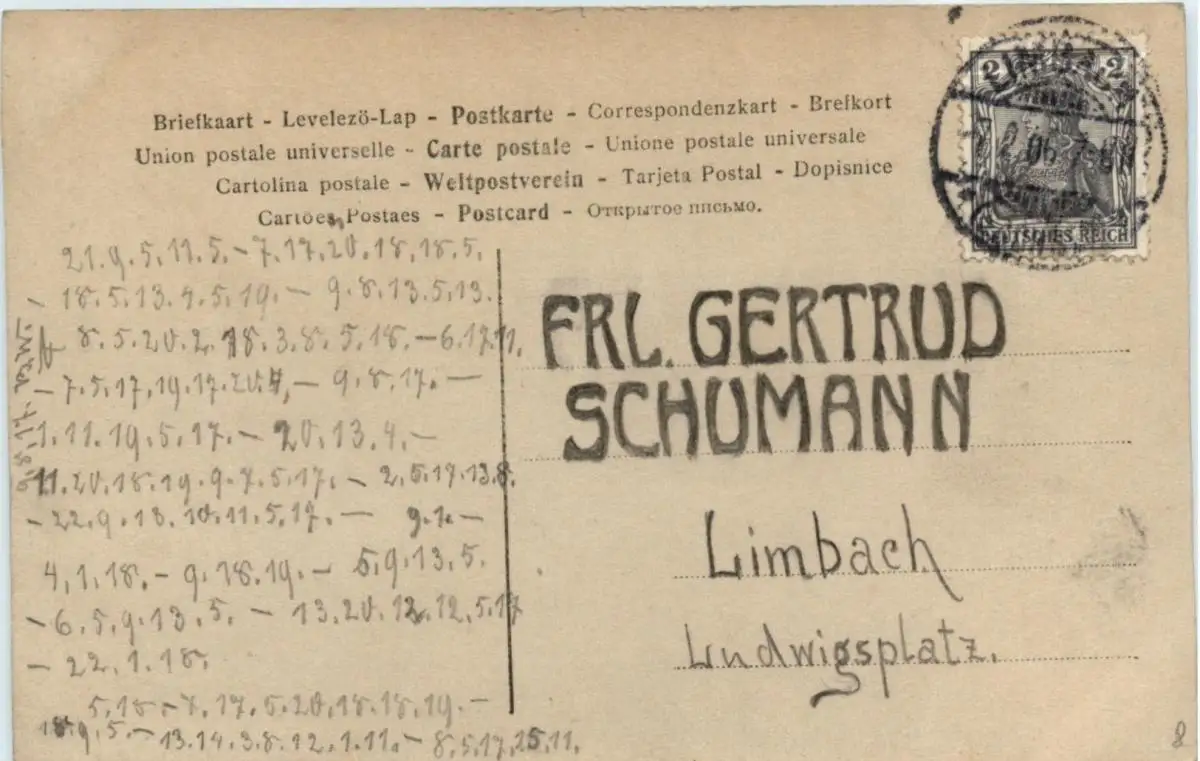 Briefkaart - Levelezö-Lap - Postkarte - Correspondenzkart - Brefkort
Union postale universelle - Carte postale - Unione postale universale
Cartolina postale - Weltpostverein - Tarjeta Postal - Dopisnice
Cartões Postaes - Postcard - Открытое письмо.
2 2
DEUTSCHES REICH
21.9.5.11.5. – 7.17.20.18.18.5.
– 18.5.13.4.5.19. – 9.8.13.5.13.
8.5.20.2.18.3.8.5.18. – 6.17.11.
– 7.5.17.19.17.20.4. – 9.8.17. –
1.11.19.5.17. – 20.13.4. –
11.20.18.19.9.7.5.17. – 2.5.17.13.8.
– 22.9.18.10.11.5.17. – 9.1. –
4.1.18. – 9.18.19. – 5.9.13.5.
– 6.5.9.13.5. – 13.20.12.12.5.17
– 22.1.18.
5.18. – 7.17.5.20.18.18.19. –
18.9.5. – 13.14.3.8.12.1.11. – 8.5.17.25.11.
FRL. GERTRUD
SCHUMANN
Limbach
Ludwigsplatz.
8